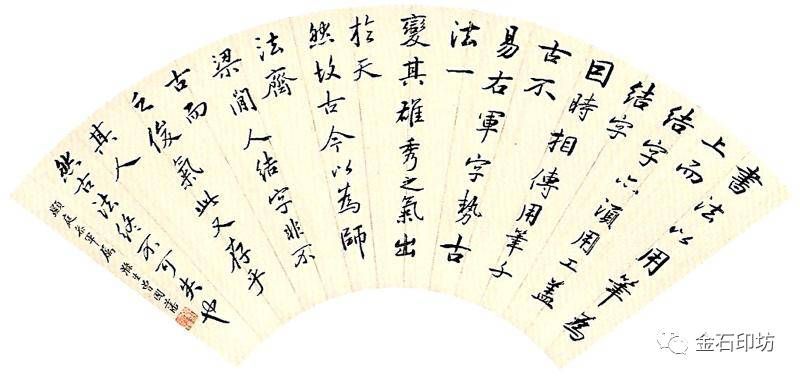 書法以用筆為
上而
結字亦須用工蓋
結字
因時相傳用筆千
古不
易右軍字勢古
法一
變其雄秀之氣出
於天
然故古今以為師
法齊
梁間人結字非不
古而
乏俊氣此又存乎
其人
然古法終不可失也
庭參軍屬 滌生曾國藩
金石印坊